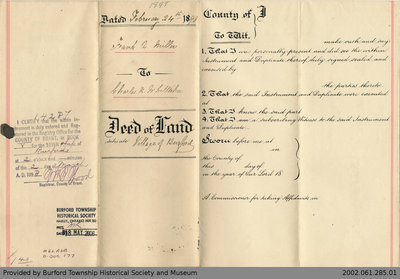 1895
Dated February 24th 18
Frank E. Miller
To
Charles N. Whittaker
Deed of Land
situate Village of Burford
County of
To Wit.
make oath and say:
1. That I was personally present and did see the within
Instrument and Duplicate thereof duly signed sealed and
executed by
the parties thereto
2. That the said Instrument and Duplicate were executed
at
3. That I know the said part
4. That I am a subscribing Witness to the said Instrument
and Duplicate.
Sworn before me at
in the County of
this day of
in the year of Our Lord 18
A Commissioner for taking Affidavits, in
I CERTIFY that the within Instrument is duly entered and Registered in the Registry Office for the
COUNTY OF BRANT, in BOOK
for the
Burford
at o'clock and minutes
of the 2 day of March
A.D. 18
Registrar, County of Brant.
BURFORD TOWNSHIP
HISTORICAL SOCIETY
18 MAY 2002
Provided by Burford Township Historical Society and Museum
2002.061.285.01